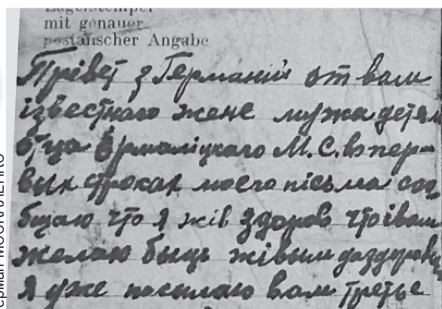 Lagerstempel
mit genauer
postalischer Angabe
Прівет з Германиі от вам
ізвестнаго жене мужа детям
отца Ермаліцкаго М. С. в пер-
вых строках моего пісьма соо
бщаю что я жів здоров что і вам
желаю быць жівым да здоровым
Я уже посылаю вам третье